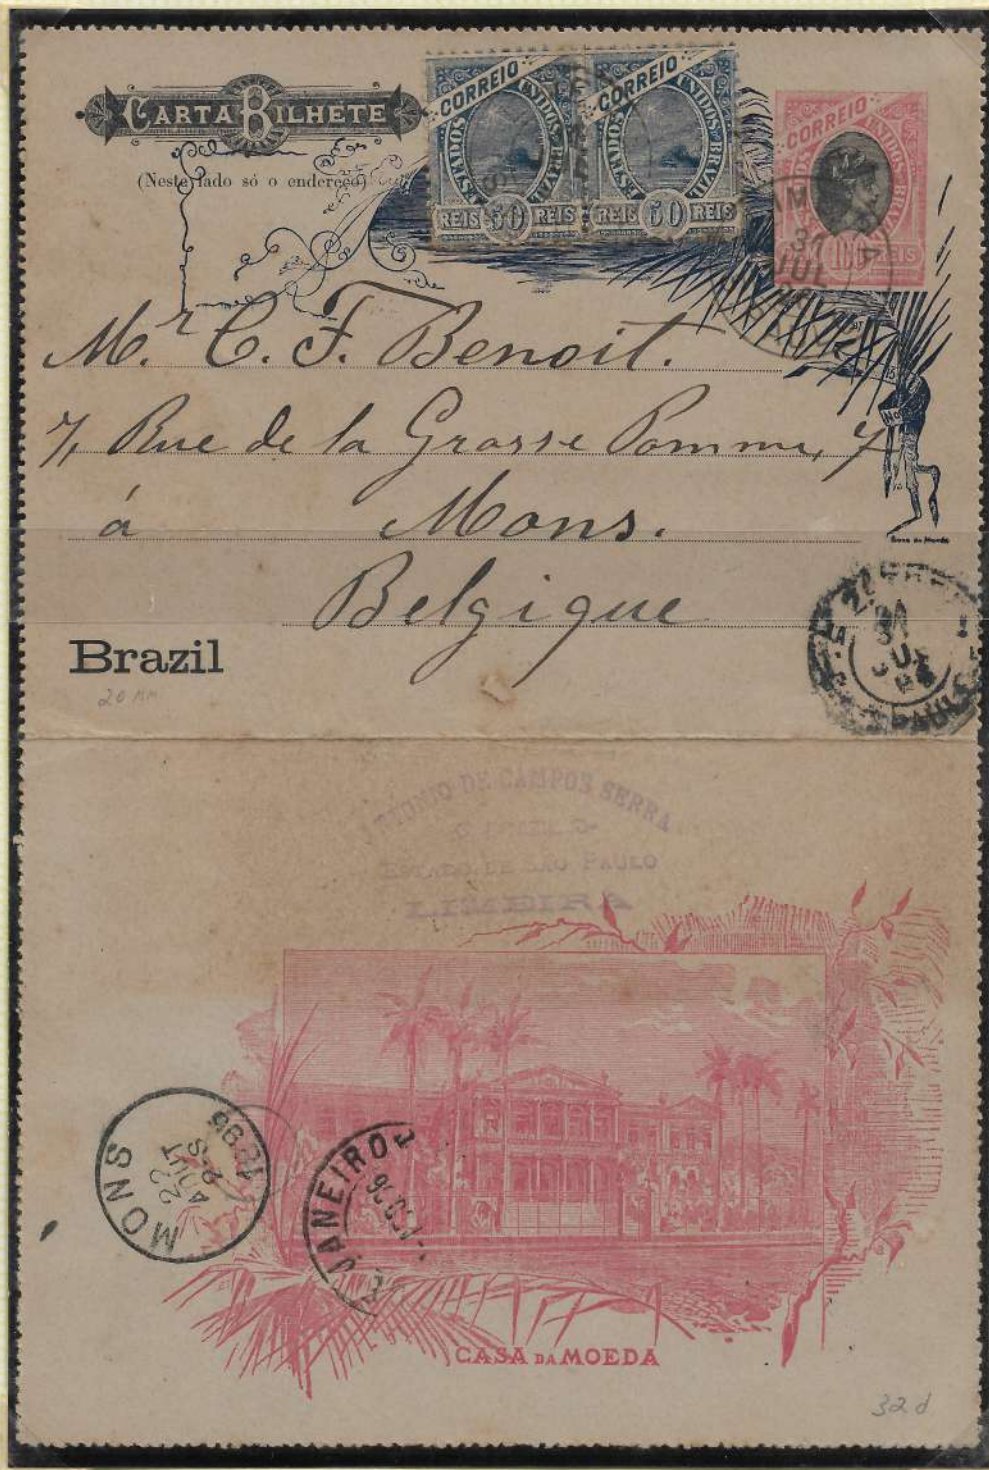 CARTA BILHETE
(Neste lado só o endereço)
CORREIO
ESTADOS UNIDOS BRAZIL
REIS 50 REIS
CORREIO
ESTADOS UNIDOS BRAZIL
REIS 50 REIS
CORREIO
ESTADOS UNIDOS BRAZIL
100 REIS
31
JUL
Mr. C. F. Benoit.
7, Rue de la Grosse Pomme, 7
á Mons.
Belgique
Casa da Moeda
Brazil
20 mm
S. PAULO
ANTONIO DE CAMPOS SERRA
ESTADO DE SÃO PAULO
LIMEIRA
MONS
22
AOUT
2-S
1896
JANEIRO
CASA DA MOEDA
32 d